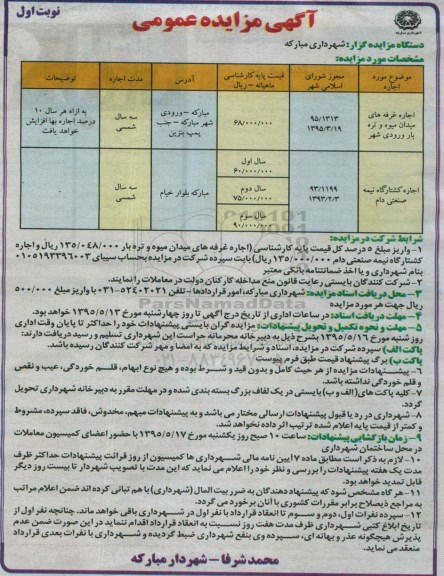 نوبت اول
آگهی مزایده عمومی
دستگاه مزایده گزار: شهرداری مبارکه
مشخصات مورد مزایده:
موضوع مورد اجاره | مجوز شورای اسلامی شهر | قیمت پایه کارشناسی ماهیانه – ریال | آدرس | مدت اجاره | توضیحات
اجاره غرفه های میدان میوه و تره بار ورودی شهر | ۹۵/۱۳۱۳ ۱۳۹۵/۳/۱۹ | ۶۸/۰۰۰/۰۰۰ | مبارکه – ورودی شهر مبارکه – جنب پمپ بنزین | سه سال شمسی | به ازاء هر سال ۱۰ درصد اجاره بها افزایش خواهد یافت
اجاره کشتارگاه نیمه صنعتی دام | ۹۳/۱۱۹۹ ۱۳۹۳/۲/۳ | سال اول ۶۰/۰۰۰/۰۰۰ سال دوم ۷۵/۰۰۰/۰۰۰ سال سوم ۹۰/۰۰۰/۰۰۰ | مبارکه بلوار خیام | سه سال شمسی
شرایط شرکت در مزایده:
۱- واریز مبلغ ۵ درصد کل قیمت پایه کارشناسی (اجاره غرفه های میدان میوه و تره بار ۱۳۵/۰۴۸/۰۰۰ ریال و اجاره
کشتارگاه نیمه صنعتی دام ۱۳۵/۰۰۰/۰۰۰ ریال) بابت سپرده شرکت در مزایده بحساب سیبای ۰۱۰۵۱۹۳۳۹۶۰۰۳
بنام شهرداری و یا اخذ ضمانتنامه بانکی معتبر
۲- شرکت کنندگان بایستی رعایت قانون منع مداخله کارکنان دولت در معاملات را نمایند.
۳- محل دریافت اسناد مزایده: شهرداری مبارکه، امور قراردادها – تلفن ۵۲۴۰۲۰۲۱-۰۳۱ با واریز مبلغ ۵۰۰/۰۰۰
ریال جهت هر مورد مزایده
۴- مهلت دریافت اسناد: در ساعات اداری از تاریخ درج آگهی تا روز چهارشنبه مورخ ۱۳۹۵/۵/۱۳ خواهد بود.
۵- مهلت و نحوه تکمیل و تحویل پیشنهادات: مزایده گران بایستی پیشنهادات خود را حداکثر تا پایان وقت اداری
روز شنبه مورخ ۱۳۹۵/۵/۱۶ بشرح ذیل به دبیرخانه محرمانه حراست این شهرداری تسلیم و رسید دریافت دارند:
پاکت الف) سپرده شرکت در مزایده، اسناد و شرایط مزایده که به امضاء و مهر شرکت کنندگان رسیده باشد.
پاکت ب) برگ پیشنهاد قیمت طبق فرم پیوست
۶- پیشنهادات مزایده از هر حیث کامل و بدون قید و شرط بوده و هیچ نوع ابهام، قلم خوردگی، عیب و نقص
و قلم خوردگی نداشته باشد.
۷- کلیه پاکت های (الف و ب) بایستی در یک لفاف بزرگ بسته بندی شده و در مهلت مقرر به دبیرخانه شهرداری تحویل
گردد.
۸- شهرداری در رد یا قبول پیشنهادات ارسالی مختار می باشد و به پیشنهادات مبهم، مخدوش، فاقد سپرده، مشروط
و کمتر از قیمت پایه اعلام شده ترتیب اثر داده نخواهد شد.
۹- زمان بازگشایی پیشنهادات: ساعت ۱۰ صبح روز یکشنبه مورخ ۱۳۹۵/۵/۱۷ با حضور اعضای کمیسیون معاملات
در محل ساختمان شهرداری
۱۰- لازم به ذکر است مطابق ماده ۷ آیین نامه مالی شهرداری ها کمیسیون از روز قرائت پیشنهادات حداکثر ظرف
مدت یک هفته پیشنهادات را بررسی و نظر خود را اعلام می نماید که این مدت با تصویب شهردار تا بیست روز دیگر
قابل تمدید خواهد بود.
۱۱- هر گاه مشخص شود که پیشنهاد دهندگان به ضرر بیت المال (شهرداری) با هم تبانی کرده اند ضمن اعلام مراتب
به مراجع ذیصلاح برابر مقررات کشوری با آنان برخورد می گردد.
۱۲- سپرده نفرات اول، دوم و سوم تا انعقاد قرارداد با نفر اول در شهرداری باقی خواهد ماند. چنانچه نفر اول از
تاریخ ابلاغ کتبی شهرداری ظرف مدت هفت روز نسبت به انعقاد قرارداد اقدام ننماید در این صورت ضمن عدم
پذیرش هیچگونه عذر و بهانه ای، سپرده وی بنفع شهرداری ضبط گردیده و شهرداری با نفرات بعدی قرارداد
منعقد می نماید.
محمد شرفا – شهردار مبارکه